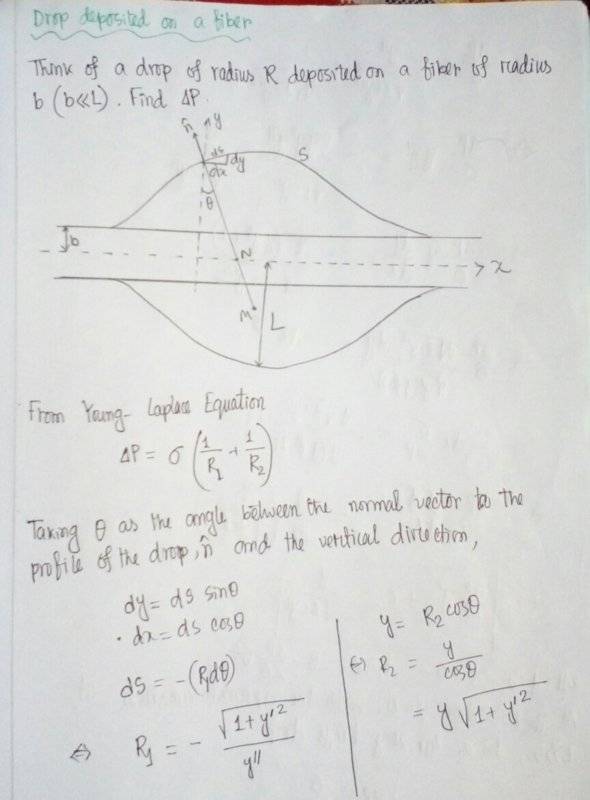 Drop deposited on a fiber
Think of a drop of radius R deposited on a fiber of radius
b (b≪L). Find ΔP.
n̂
y
ds
dy
S
dx
θ
b
N
x
M
L
From Young-Laplace Equation
ΔP = σ (1/R₁ + 1/R₂)
Taking θ as the angle between the normal vector to the
profile of the drop, n̂ and the vertical direction,
dy = ds sinθ
· dx = ds cosθ
ds = -(R₁dθ)
⇔ R₁ = - √(1+y'²) / y''
y = R₂ cosθ
⇔ R₂ = y / cosθ
= y √(1+y'²)